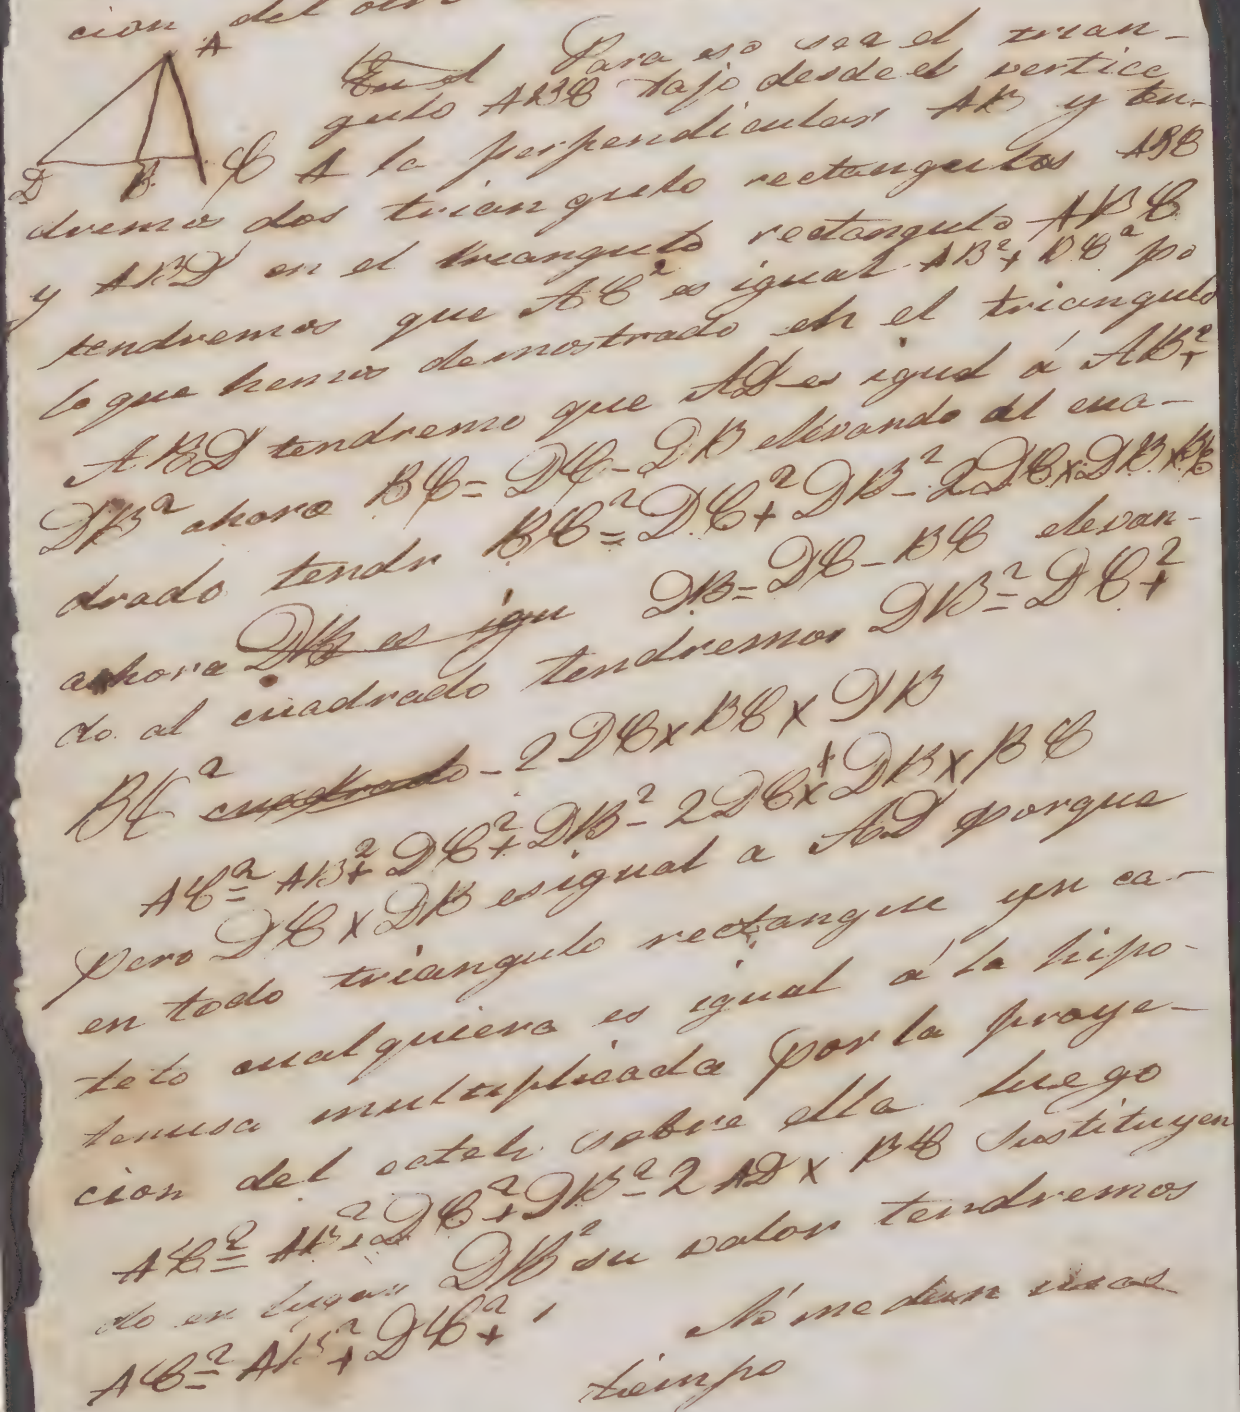 cion del otr
A
En el Para eso sea el trian-
gulo ABC bajo desde el vertice
D B C A la perpendicular AB y ten-
dremo dos triangulo rectangulos ABC
y ABD en el triangulo rectangulo ABC
tendremos que AC² es igual AB²+BC² po
lo que hemos demostrado en el triangulo
ABD tendremo que AD es igual á AB²+
DB² ahora BC=DC-DB elevando al cua-
drado tendr BC²=DC²+DB²-2DC×DB×BC
ahora DB es igu DB=DC-BC elevan-
do al cuadrado tendremos DB²=DC²+
BC² cuadrado -2DC×BC×DB
AC²=AB²+DC²+DB²-2DC×DB×BC
pero DC×DB es igual a AD porque
en todo triangulo rectangu un ca-
teto cualquiera es igual á la hipo-
tenusa multiplicada por la proye-
cion del catet sobre ella luego
AC²=AB²+DC²+DB²-2AD×BC Sustituyen
do en lugar DB² su valor tendremos
AC²=AB²+DC²+
No me dan mas
tiempo